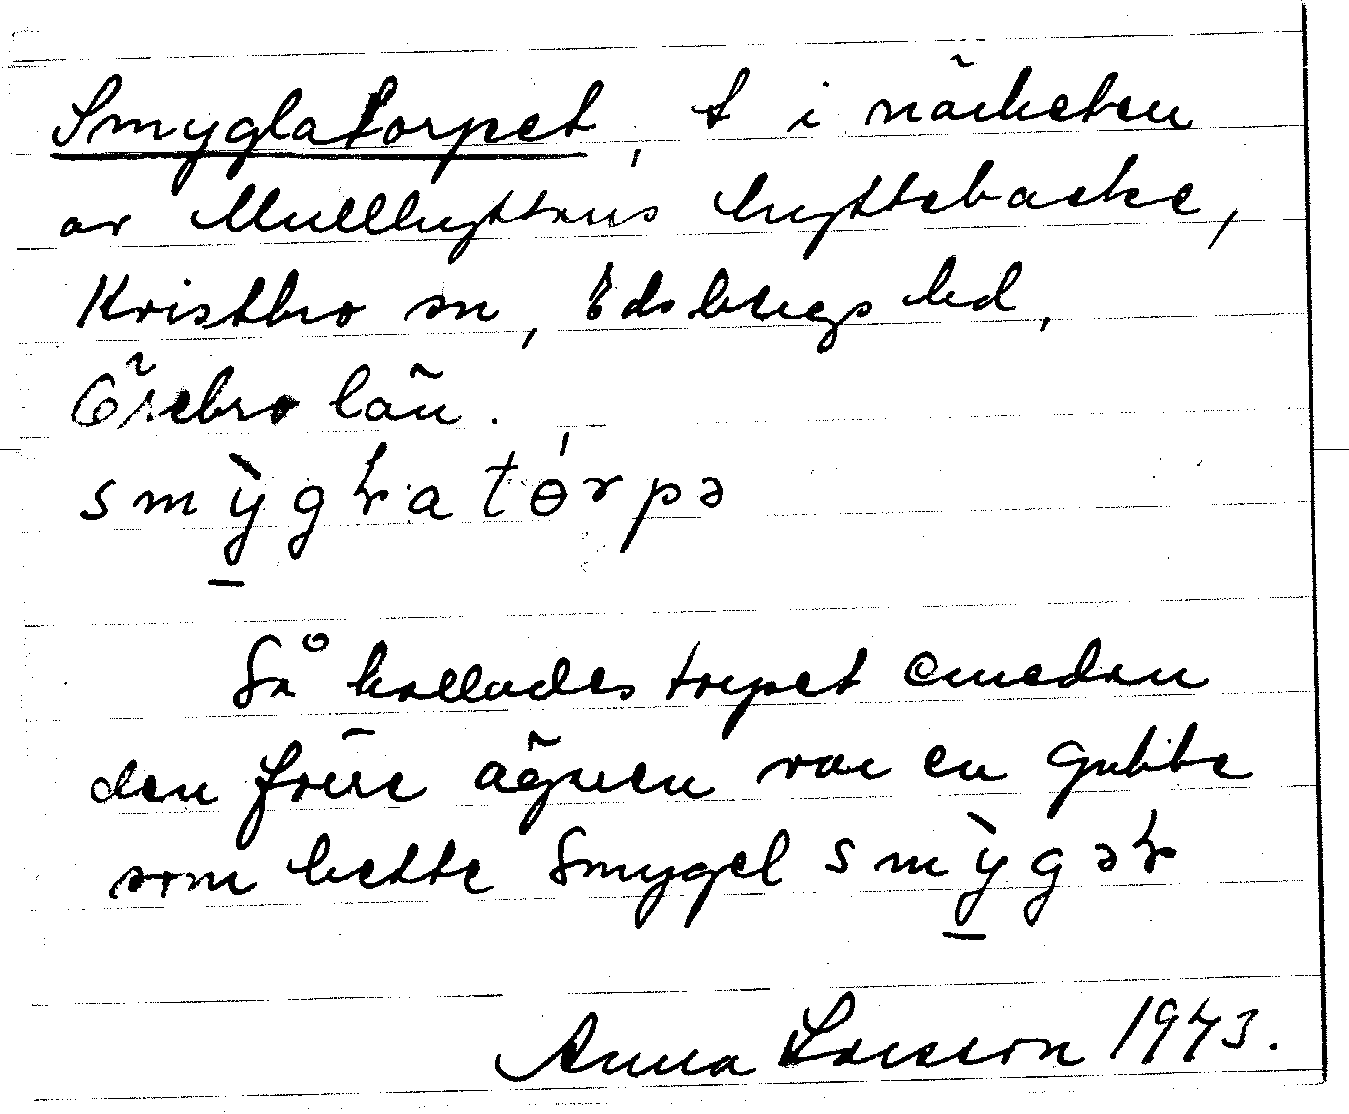 Smyglatorpet, t i närheten
av Mullhyttans hyttebacke,
Kvistbro sn, Edsbergs hd,
Örebro län.
smỳgɫatɵ́rpə
Så kallades torpet emedan
den förre ägaren var en gubbe
som hette Smygel smỳgəɫ
Anna Larsson 1943.